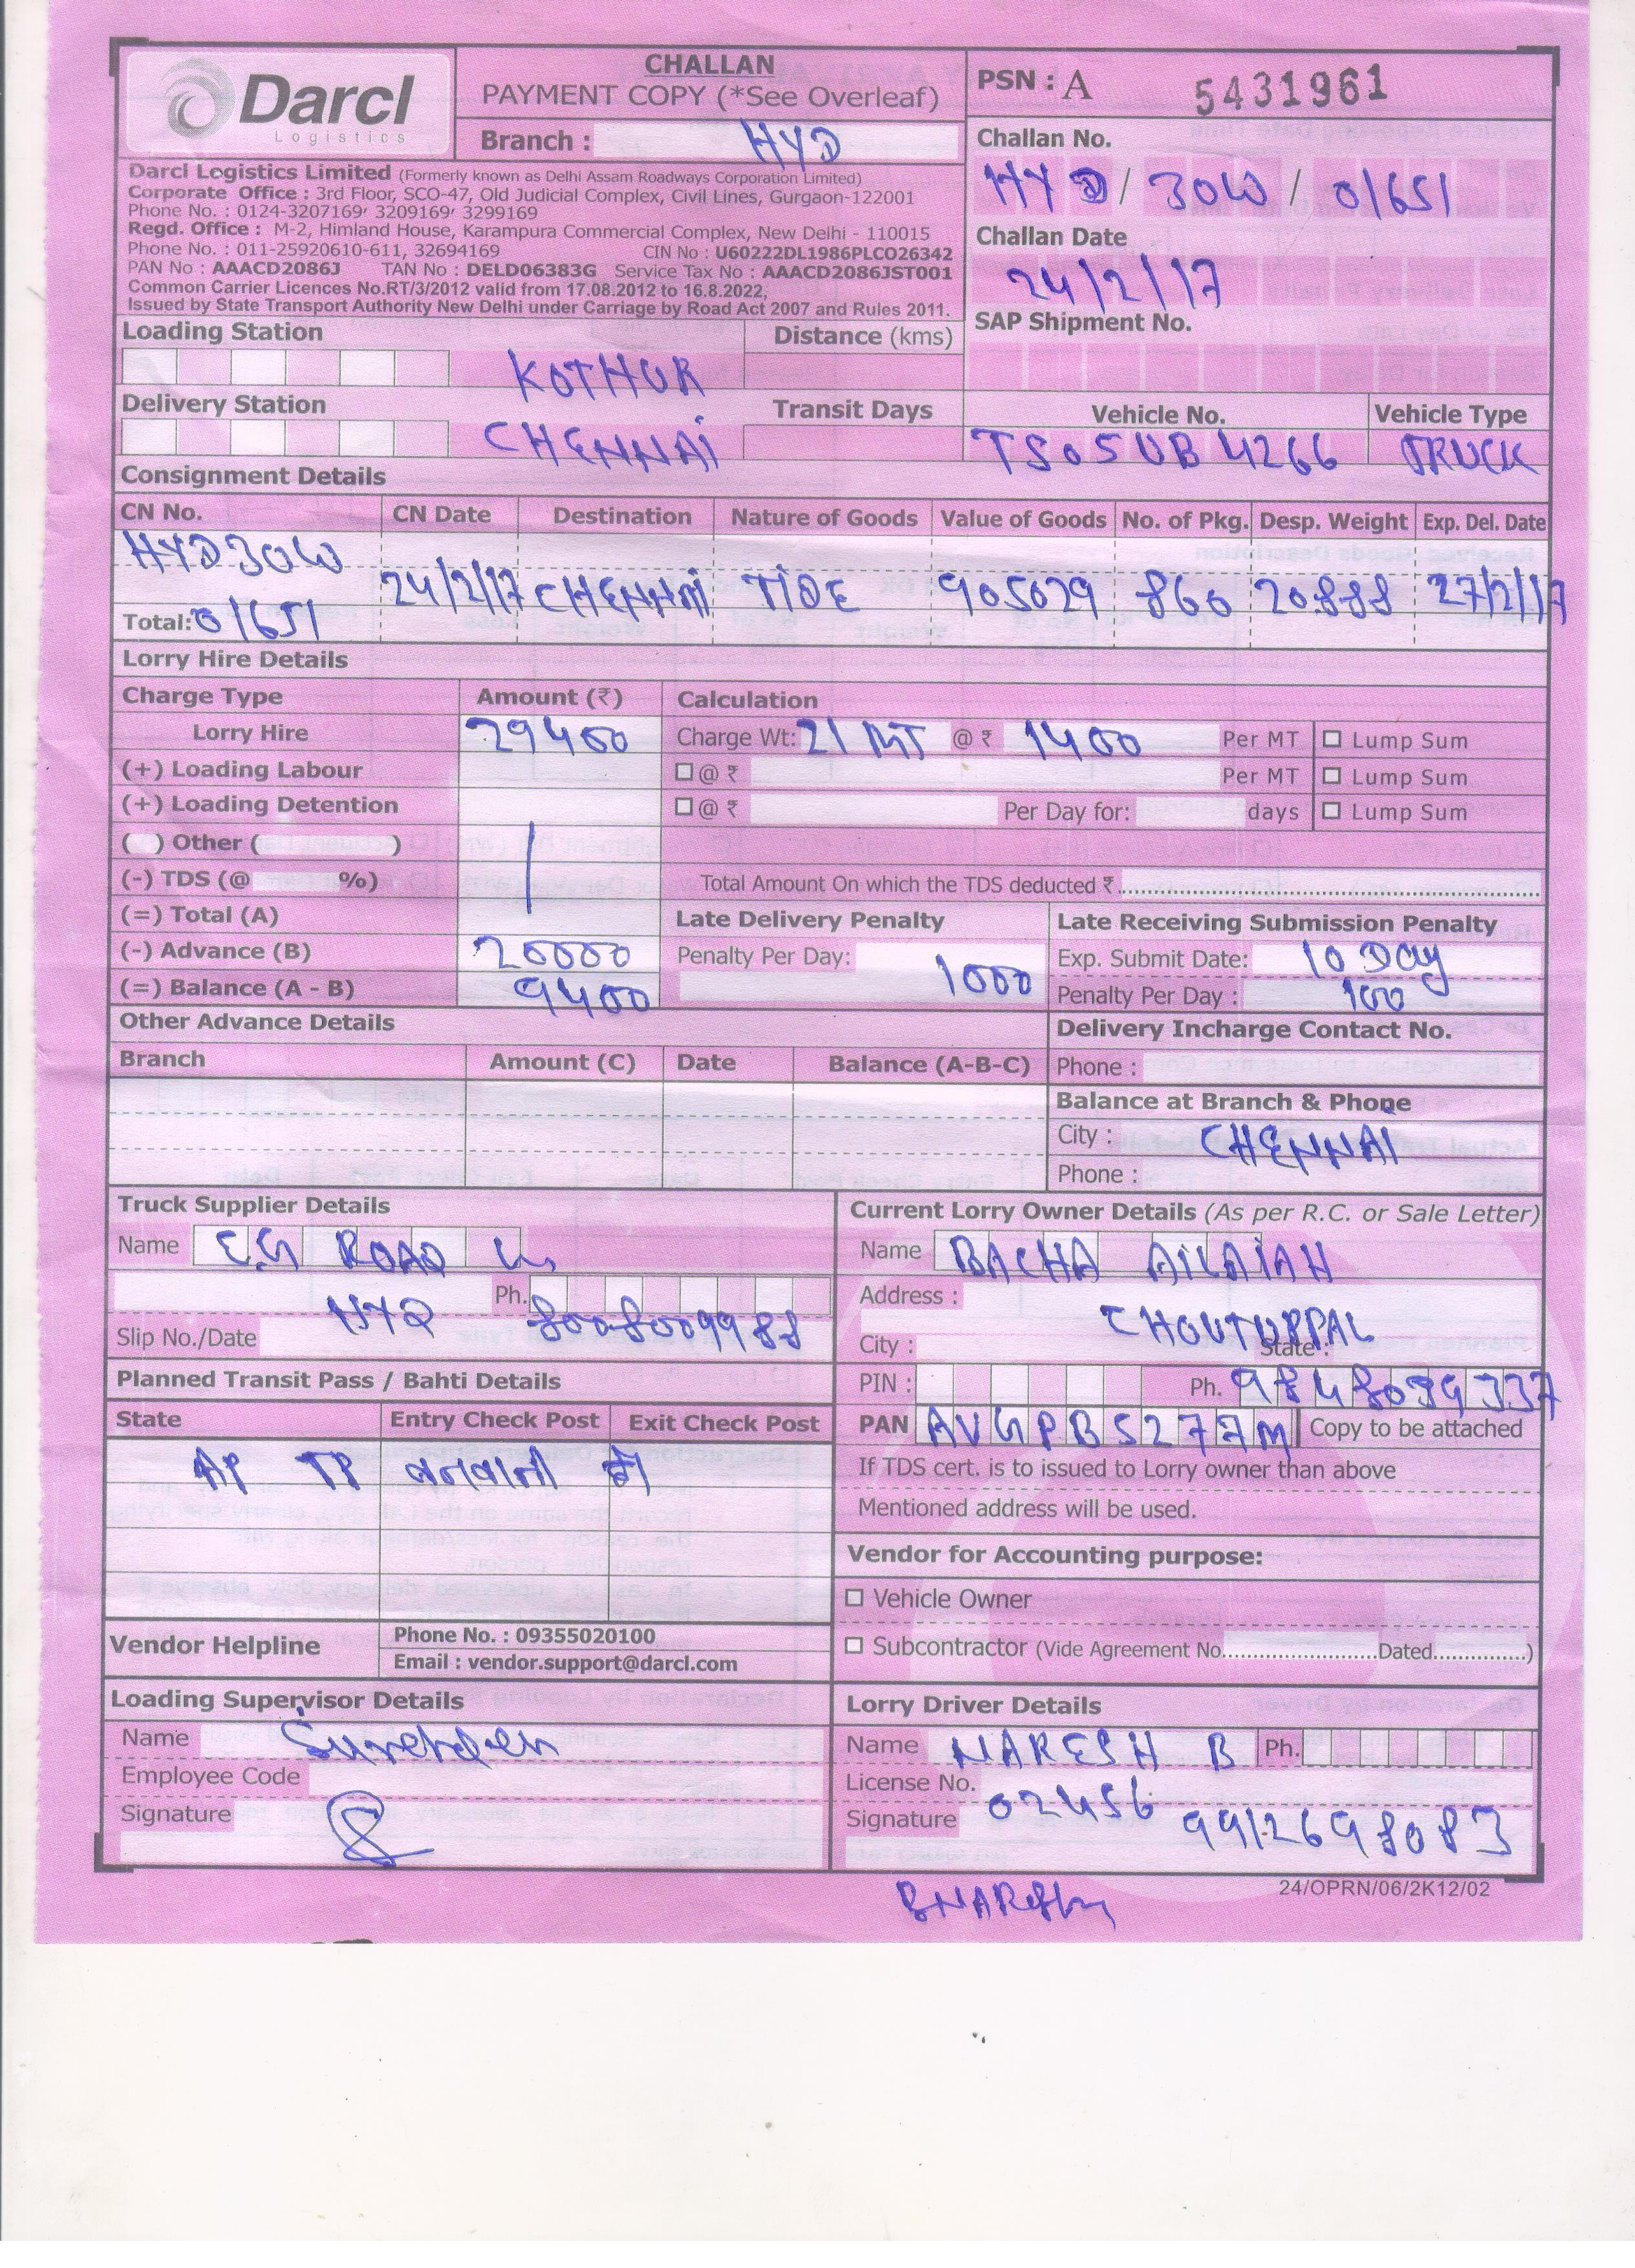 Darcl
Logistics
CHALLAN
PAYMENT COPY (*See Overleaf)
Branch : HYD
PSN : A 5431961
Challan No.
HYD / 30W / 01651
Challan Date
24/2/17
SAP Shipment No.
Darcl Logistics Limited (Formerly known as Delhi Assam Roadways Corporation Limited)
Corporate Office : 3rd Floor, SCO-47, Old Judicial Complex, Civil Lines, Gurgaon-122001
Phone No. : 0124-3207169, 3209169, 3299169
Regd. Office : M-2, Himland House, Karampura Commercial Complex, New Delhi - 110015
Phone No. : 011-25920610-611, 32694169 CIN No : U60222DL1986PLCO26342
PAN No : AAACD2086J TAN No : DELD06383G Service Tax No : AAACD2086JST001
Common Carrier Licences No.RT/3/2012 valid from 17.08.2012 to 16.8.2022,
Issued by State Transport Authority New Delhi under Carriage by Road Act 2007 and Rules 2011.
Loading Station KOTHUR Distance (kms)
Delivery Station CHENNAI Transit Days
Vehicle No. Vehicle Type
TS05UB4266 TRUCK
Consignment Details
CN No. CN Date Destination Nature of Goods Value of Goods No. of Pkg. Desp. Weight Exp. Del. Date
HYD30W
24/2/17 CHENNAI TIDE 905029 860 20.888 27/2/17
Total: 01651
Lorry Hire Details
Charge Type Amount (₹) Calculation
Lorry Hire 29400 Charge Wt: 21 MT @ ₹ 1400 Per MT Lump Sum
(+) Loading Labour @ ₹ Per MT Lump Sum
(+) Loading Detention @ ₹ Per Day for: days Lump Sum
( ) Other ( )
(-) TDS (@ %) Total Amount On which the TDS deducted ₹
(=) Total (A) Late Delivery Penalty Late Receiving Submission Penalty
(-) Advance (B) 20000 Penalty Per Day: 1000 Exp. Submit Date: 10 Day
(=) Balance (A - B) 9400 Penalty Per Day : 100
Other Advance Details Delivery Incharge Contact No.
Branch Amount (C) Date Balance (A-B-C) Phone :
Balance at Branch & Phone
City : CHENNAI
Phone :
Truck Supplier Details
Name E.G ROAD
Ph. 8008009988
Slip No./Date
Current Lorry Owner Details (As per R.C. or Sale Letter)
Name BACHA AILAIAH
Address : CHOUTUPPAL
City : State :
PIN : Ph. 9848039337
PAN AVGPB5277M Copy to be attached
If TDS cert. is to issued to Lorry owner than above
Mentioned address will be used.
Planned Transit Pass / Bahti Details
State Entry Check Post Exit Check Post
AP TP बनवानी है
Vendor for Accounting purpose:
Vehicle Owner
Subcontractor (Vide Agreement No. Dated )
Vendor Helpline Phone No. : 09355020100
Email : vendor.support@darcl.com
Loading Supervisor Details
Name
Employee Code
Signature
Lorry Driver Details
Name NARESH B Ph.
License No. 02456
Signature 9912698083
24/OPRN/06/2K12/02